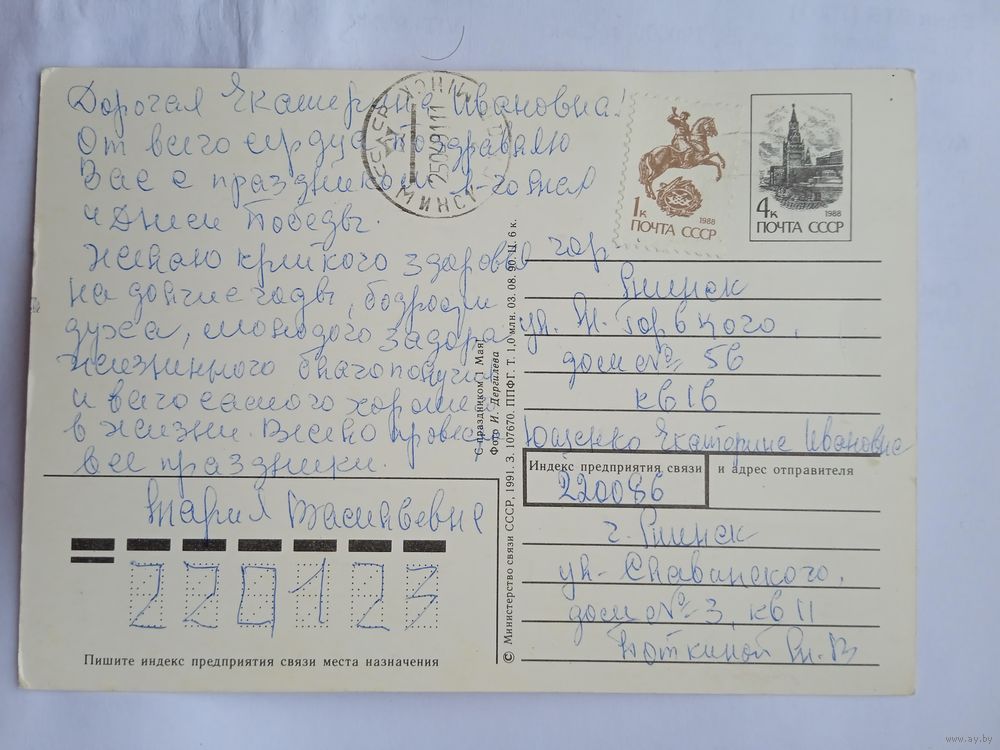 Дорогая Екатерина Ивановна!
От всего сердца поздравляю
Вас с праздником 1-го Мая
и Днем Победы.
Желаю крепкого здоровья
на долгие годы, бодрости
духа, молодого задора
жизненного благополучия
и всего самого хорошего
в жизни. Весело провести
все праздники.
Мария Васильевна
220123
Пишите индекс предприятия связи места назначения
МИНСК
250491111
МИНСК
1к
1988
ПОЧТА СССР
4к
1988
ПОЧТА СССР
С праздником 1 Мая!
Фото И. Дергилева
© Министерство связи СССР, 1991. З. 107670. ППФГ. Т. 1,0 млн. 03. 08. 90. Ц. 6 к.
гор
Минск
ул. М. Горького,
дом № 56
кв 16
Ющенко Екатерине Ивановне
Индекс предприятия связи и адрес отправителя
220086
г. Минск
ул. Славинского,
дом № 3, кв 11
Воткиной М. В
www.ay.by